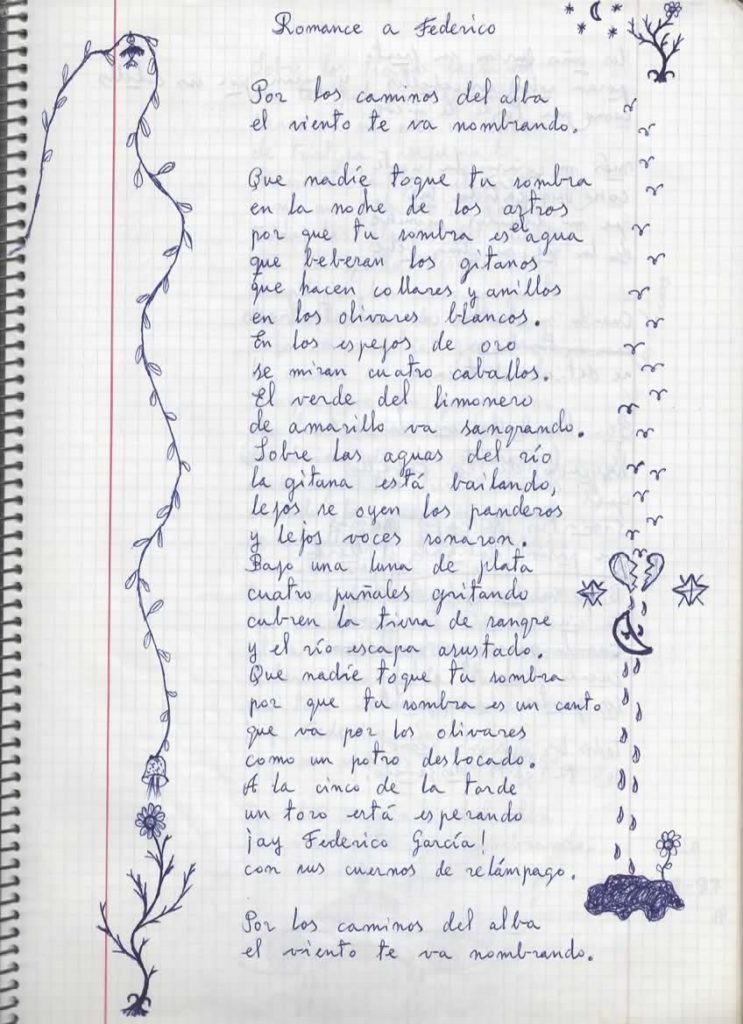 Romance a Federico
Por los caminos del alba
el viento te va nombrando.
Que nadie toque tu sombra
en la noche de los astros
por que tu sombra es el agua
que beberan los gitanos
que hacen collares y anillos
en los olivares blancos.
En los espejos de oro
se miran cuatro caballos.
El verde del limonero
de amarillo va sangrando.
Sobre las aguas del río
la gitana está bailando,
lejos se oyen los panderos
y lejos voces sonaron.
Bajo una luna de plata
cuatro puñales gritando
cubren la tierra de sangre
y el río escapa asustado.
Que nadie toque tu sombra
por que tu sombra es un canto
que va por los olivares
como un potro desbocado.
A la cinco de la tarde
un toro está esperando
¡ay Federico García!
con sus cuernos de relámpago.
Por los caminos del alba
el viento te va nombrando.